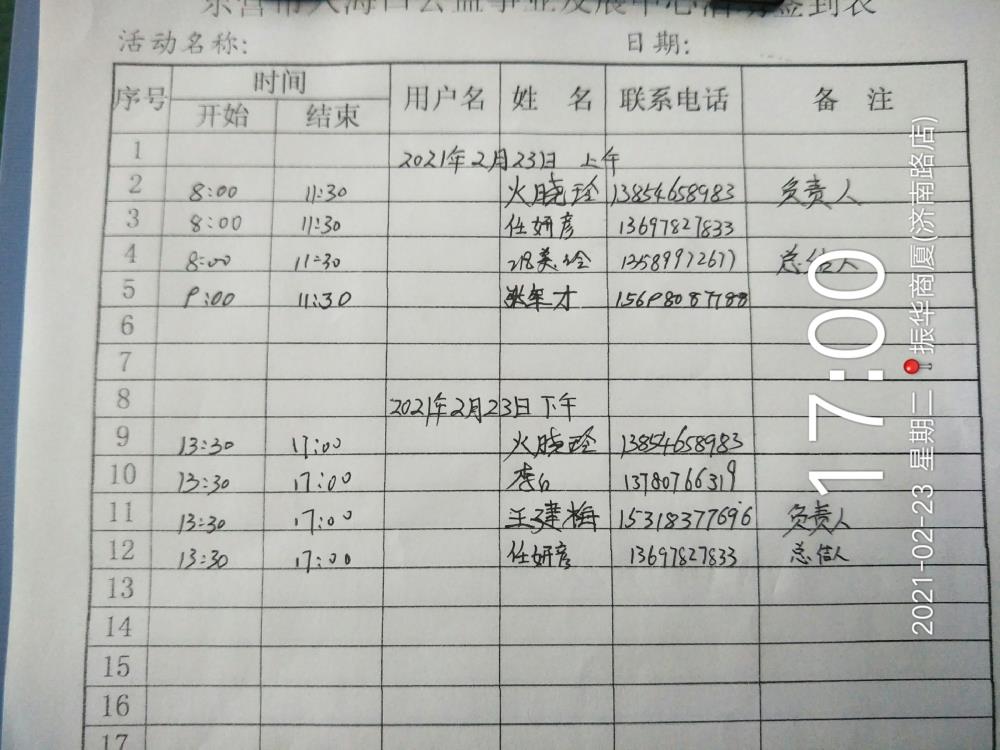 活动名称: 日期:
序号 时间 用户名 姓 名 联系电话 备 注
开始 结束
1 2021年2月23日 上午
2 8:00 11:30 火晓玲 13854658983 负责人
3 8:00 11:30 任妍彦 13697827833
4 8:00 11:30 13589972677 总结人
5 9:00 11:30 张军才
6
7
8 2021年2月23日下午
9 13:30 17:00 火晓玲 13854658983
10 13:30 17:00 13780766319
11 13:30 17:00 王建梅 15318377696 负责人
12 13:30 17:00 任妍彦 13697827833 总结人
13
14
15
16
17
17:00
2021-02-23 星期二 振华商厦(济南路店)